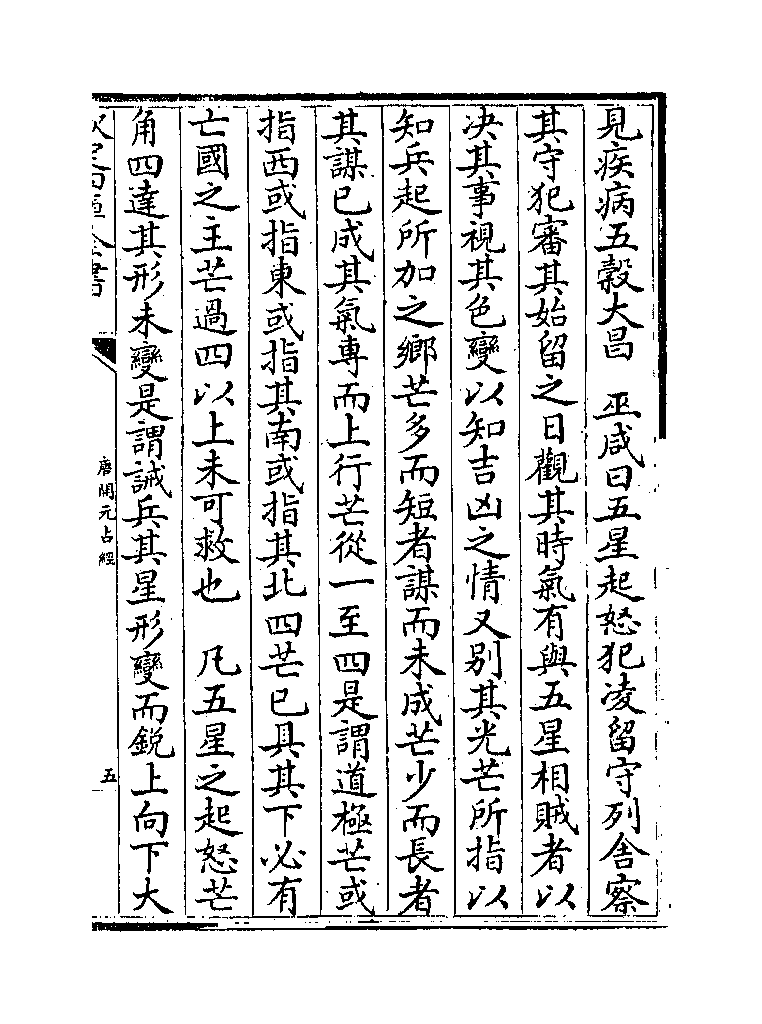 見疾病五穀大昌　巫咸曰五星起怒犯凌留守列舍察
其守犯審其始留之日觀其時氣有與五星相賊者以
決其事視其色變以知吉凶之情又别其光芒所指以
知兵起所加之鄉芒多而短者謀而未成芒少而長者
其謀已成其氣専而上行芒從一至四是謂道極芒或
指西或指東或指其南或指其北四芒已具其下必有
亡國之主芒過四以上未可救也　凡五星之起怒芒
角四達其形未變是謂誡兵其星形變而銳上向下大
欽定四庫全書
唐開元占經
五